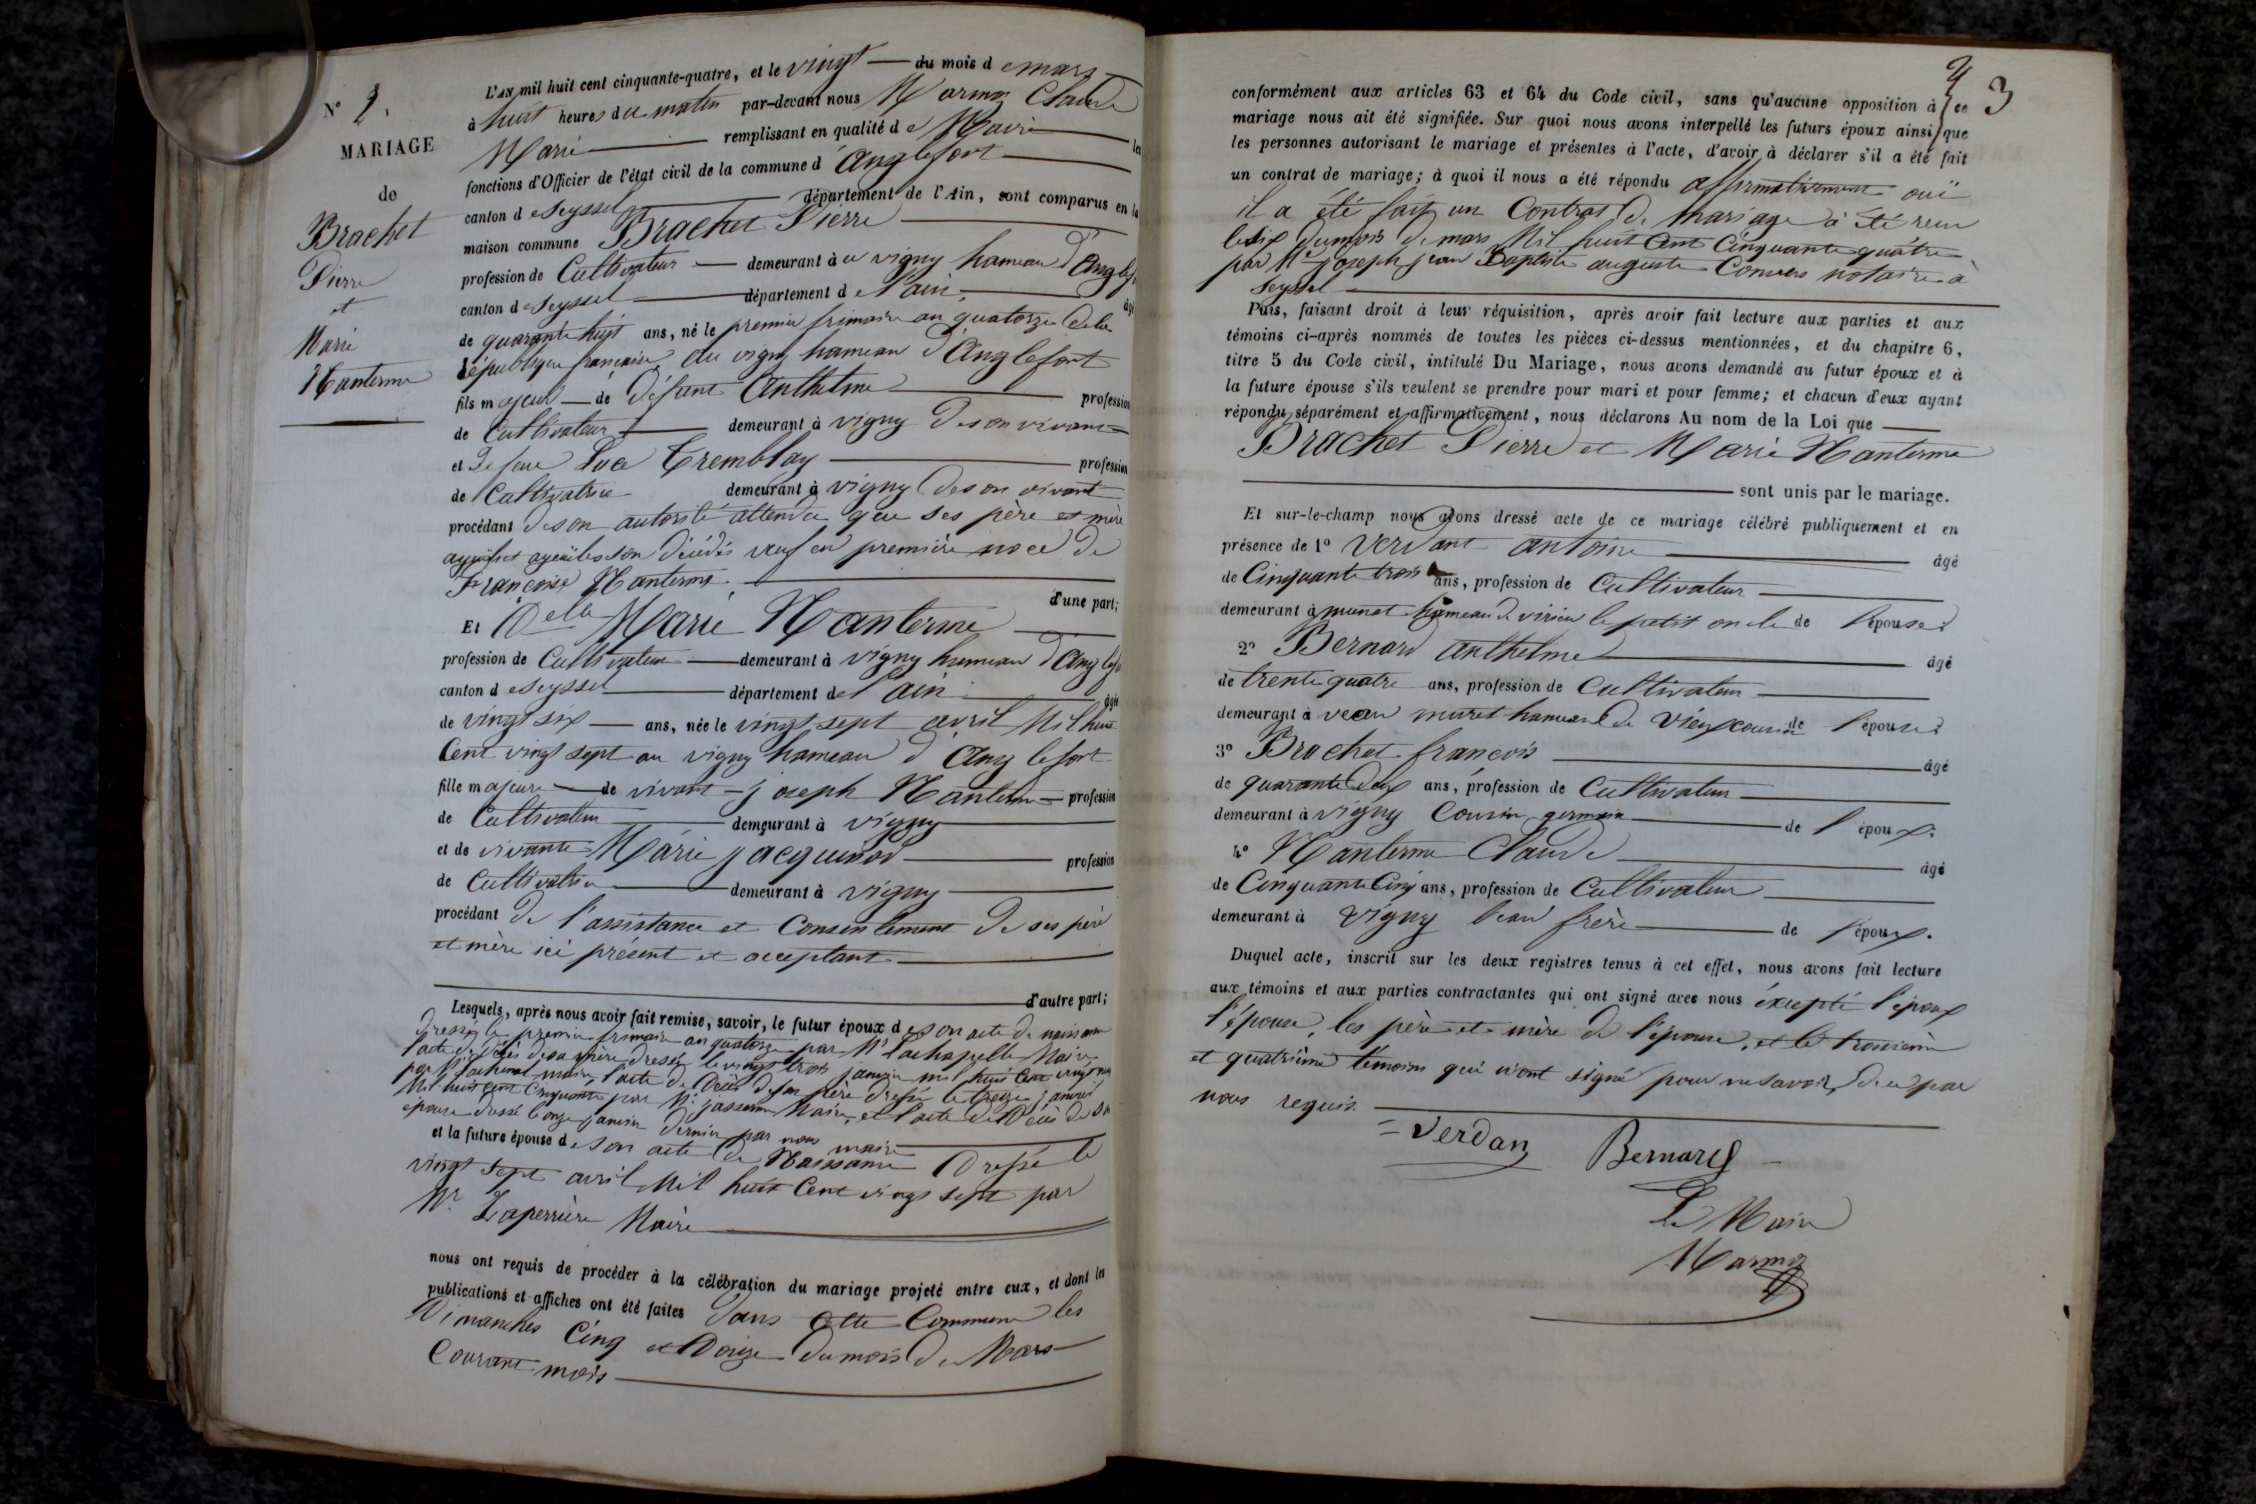 L'AN mil huit cent cinquante-quatre, et le vingt du mois de mars
à huit heures du matin par-devant nous Marmy Claude
Marie remplissant en qualité de Maire les
fonctions d'Officier de l'état civil de la commune d'anglefort
canton de Seyssel département de l'Ain, sont comparus en la
maison commune Brachet Pierre
profession de Cultivateur demeurant à u vigny hameau d'anglefo
canton de Seyssel département de l'ain, âgé
de quarante huit ans, né le premier frimaire an quatorze de la
république francaise au vigny hameau d'Anglefort
fils majeur de défunt Anthelme profession
de Cultivateur demeurant à vigny de son vivant
et de feue Luce Tremblay profession
de Cultivatrice demeurant à vigny de son vivant
procédant de son autorité attendu que ses père et mère
ayeuls et ayeules son décédés veuf en première noce de
Françoise Nanterme.
d'une part;
Et Delle Marie Nanterme
profession de Cultivateur demeurant à vigny hameau d'Anglefo
canton de Seyssel département de l'ain âgée
de vingt six ans, née le vingt sept avril Mil huit
Cent vingt sept au vigny hameau d'Anglefort
fille majeure de vivant joseph Nanterme profession
de Cultivateur demeurant à vigny
et de vivante Marie jacquinod profession
de Cultivatrice demeurant à vigny
procédant de l'assistance et Consentement de ses père
et mère ici présent et acceptant
d'autre part;
Lesquels, après nous avoir fait remise, savoir, le futur époux de son acte de naissance
dressé le premier frimaire an quatorze par Mr Lachapelle Maire
l'acte de décès de sa mère dressé le vingt trois janvier mil huit Cent vingt
par Mr maire, l'acte de Décès de son père dressé le treize janvier
Mil huit cent Cinquante par Mr Maire, et l'acte de Décès de sa
épouse dressé le onze janvier dernier par nous maire
et la future épouse de son acte de Naissance Dressé le
vingt sept avril Mil huit Cent vingt sept par
Mr Laperrière Maire
nous ont requis de procéder à la célébration du mariage projeté entre eux, et dont les
publications et affiches ont été faites dans cette Commune les
Dimanches Cinq et Douze du mois de Mars
Courant mois
N° 2.
MARIAGE
de
Brachet
Pierre
et
Marie
Nanterme
3
conformément aux articles 63 et 64 du Code civil, sans qu'aucune opposition à ce
mariage nous ait été signifiée. Sur quoi nous avons interpellé les futurs époux ainsi que
les personnes autorisant le mariage et présentes à l'acte, d'avoir à déclarer s'il a été fait
un contrat de mariage; à quoi il nous a été répondu affirmativement ouï
il a été fait un Contrat de mariage à été reçu
le six du mois de mars Mil huit Cent Cinquante quatre
par Me joseph jean Baptiste auguste Convers notaire à
Seyssel
Puis, faisant droit à leur réquisition, après avoir fait lecture aux parties et aux
témoins ci-après nommés de toutes les pièces ci-dessus mentionnées, et du chapitre 6,
titre 5 du Code civil, intitulé Du Mariage, nous avons demandé au futur époux et à
la future épouse s'ils veulent se prendre pour mari et pour femme; et chacun d'eux ayant
répondu séparément et affirmativement, nous déclarons Au nom de la Loi que
Brachet Pierre et Marie Nanterme
sont unis par le mariage.
Et sur-le-champ nous avons dressé acte de ce mariage célébré publiquement et en
présence de 1° Verdant antoine âgé
de Cinquante trois ans, profession de Cultivateur
demeurant à munet hameau de virieu le petit oncle de l'épouse.
2° Bernard anthelme âgé
de trente quatre ans, profession de Cultivateur
demeurant à hameau de cousin de l'épouse.
3° Brachet françois âgé
de quarante deux ans, profession de Cultivateur
demeurant à vigny Cousin germain de l'époux.
4° Nanterme Claude âgé
de Cinquante Cinq ans, profession de Cultivateur
demeurant à vigny beau frère de l'époux.
Duquel acte, inscrit sur les deux registres tenus à cet effet, nous avons fait lecture
aux témoins et aux parties contractantes qui ont signé avec nous éxcepté l'époux
l'épouse, les père et mère de l'épouse, et le troisième
et quatrième témoins qui n'ont signé pour ne savoir, de ce par
nous requis.
Verdan Bernard
Le Maire
Marmy